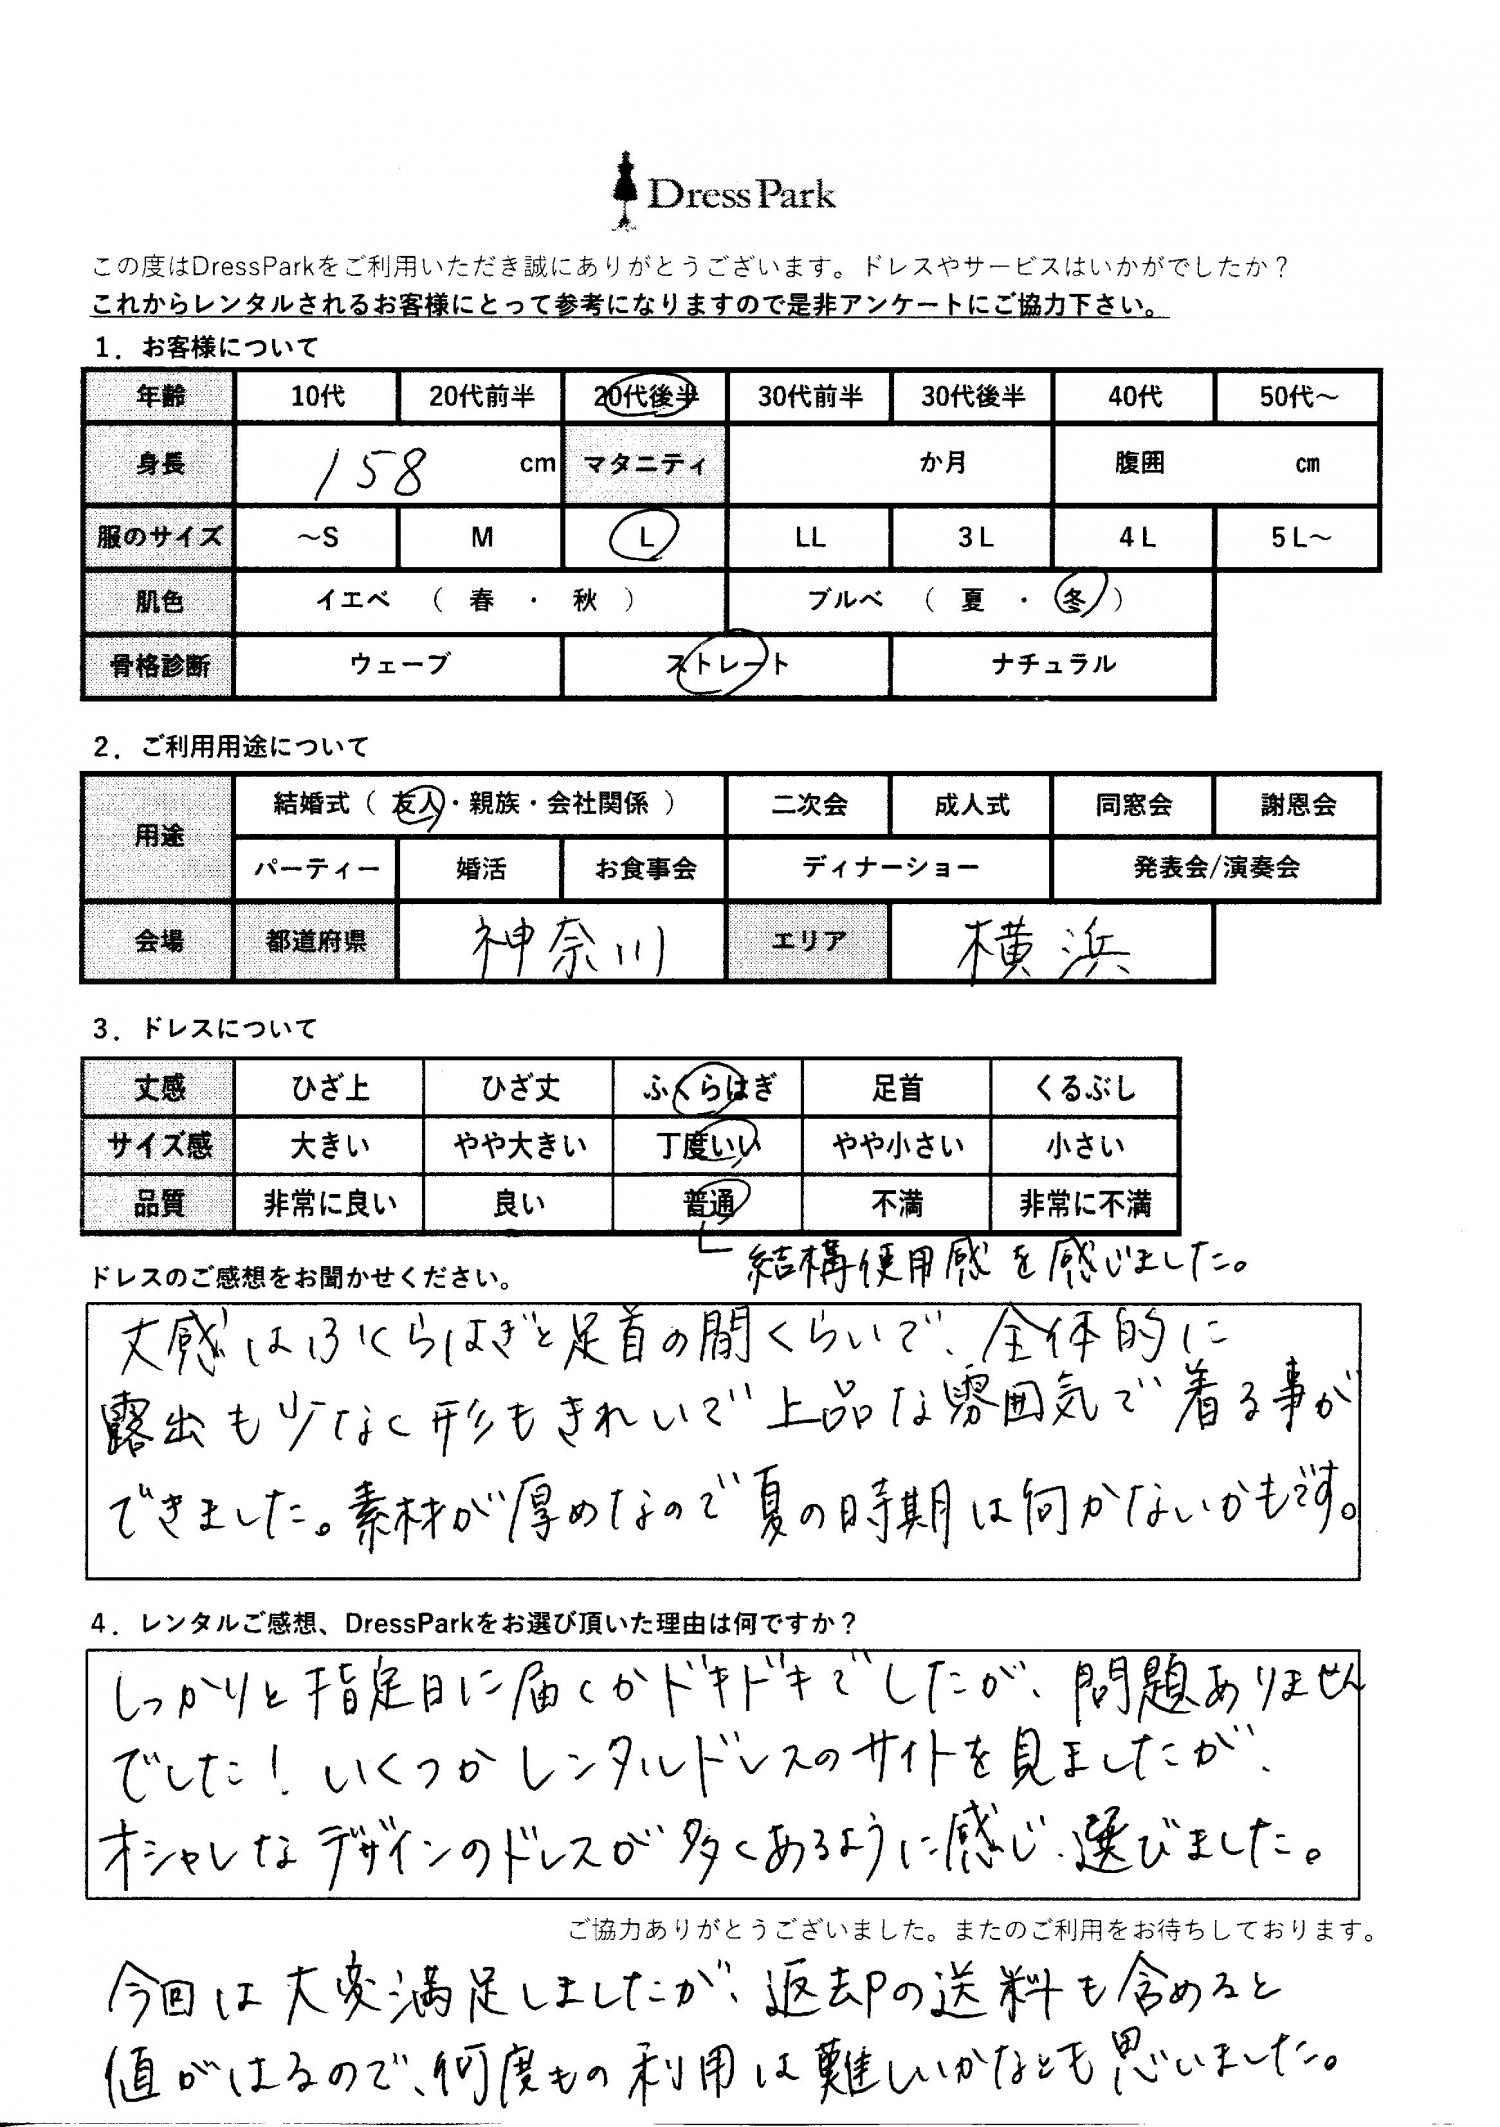 Dress Park
この度はDressParkをご利用いただき誠にありがとうございます。ドレスやサービスはいかがでしたか？
これからレンタルされるお客様にとって参考になりますので是非アンケートにご協力下さい。
1．お客様について
年齢 10代 20代前半 20代後半 30代前半 30代後半 40代 50代～
身長 158 cm マタニティ か月 腹囲 cm
服のサイズ ～S M L LL 3L 4L 5L～
肌色 イエベ （ 春 ・ 秋 ） ブルベ （ 夏 ・ 冬 ）
骨格診断 ウェーブ ストレート ナチュラル
2．ご利用用途について
用途 結婚式（ 友人・親族・会社関係 ） 二次会 成人式 同窓会 謝恩会
パーティー 婚活 お食事会 ディナーショー 発表会/演奏会
会場 都道府県 神奈川 エリア 横浜
3．ドレスについて
丈感 ひざ上 ひざ丈 ふくらはぎ 足首 くるぶし
サイズ感 大きい やや大きい 丁度いい やや小さい 小さい
品質 非常に良い 良い 普通 不満 非常に不満
結構使用感を感じました。
ドレスのご感想をお聞かせください。
丈感はふくらはぎと足首の間くらいで、全体的に
露出も少なく形もきれいで上品な雰囲気で着る事が
できました。素材が厚めなので夏の時期は向かないかもです。
4．レンタルご感想、DressParkをお選び頂いた理由は何ですか？
しっかりと指定日に届くかドキドキでしたが、問題ありません
でした！いくつかレンタルドレスのサイトを見ましたが、
オシャレなデザインのドレスが多くあるように感じ、選びました。
ご協力ありがとうございました。またのご利用をお待ちしております。
今回は大変満足しましたが、返却の送料も含めると
値がはるので、何度もの利用は難しいかなとも思いました。